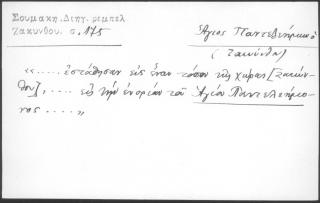 Σουμάκη. Διηγ. ρεμπελ.
Ζακύνθου. σ. 175
Ἅγιος Παντελεήμων
(Ζακύνθου)
«..... ἐστάθησαν εἰς ἕναν τόπον τῆς χώρας [Ζακύν-
θου], .... εἰς τὴν ἐνορίαν τοῦ Ἁγίου Παντελεήμο-
νος ..... »